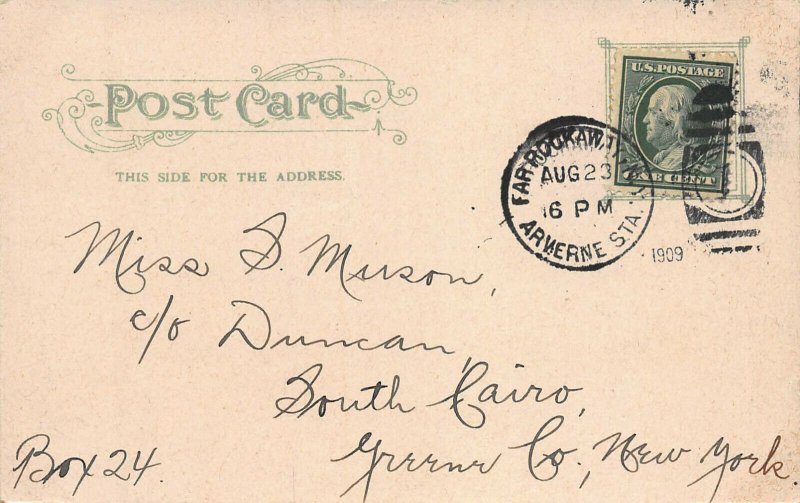 Post Card
THIS SIDE FOR THE ADDRESS.
U.S. POSTAGE
ONE CENT
FAR ROCKAWAY, N.Y.
AUG 23
6 PM
ARVERNE STA.
1909
Miss S. Muson,
c/o Duncan,
South Cairo,
Greene Co., New York
Box 24.